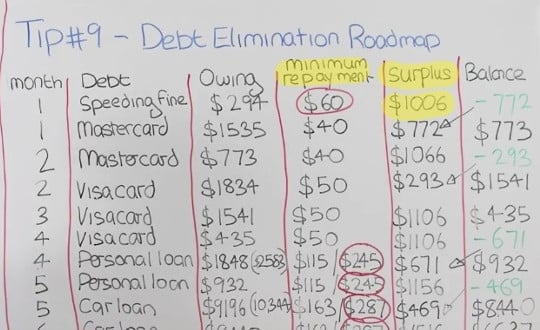 Tip#9 - Debt Elimination Roadmap
month Debt Owing minimum repayment Surplus Balance
1 Speeding fine $294 $60 $1006 -772
1 Mastercard $1535 $40 $772 $773
2 Mastercard $773 $40 $1066 -293
2 Visacard $1834 $50 $293 $1541
3 Visacard $1541 $50 $1106 $435
4 Visacard $435 $50 $1106 -671
4 Personal loan $1848 ($2583) $115/$245 $671 $932
5 Personal loan $932 $115/$245 $1156 -469
5 Car loan $9196 (10,344) $163/$287 $469 $8440